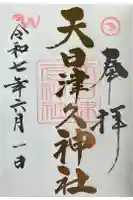 奉拝
天日津久神社
令和七年六月一日